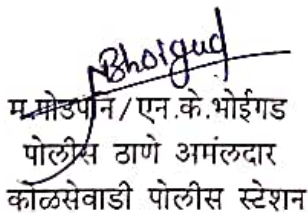 Bhoigud
म.पोउपनि/एन.के.भोईगड
पोलीस ठाणे अमंलदार
कोळसेवाडी पोलीस स्टेशन